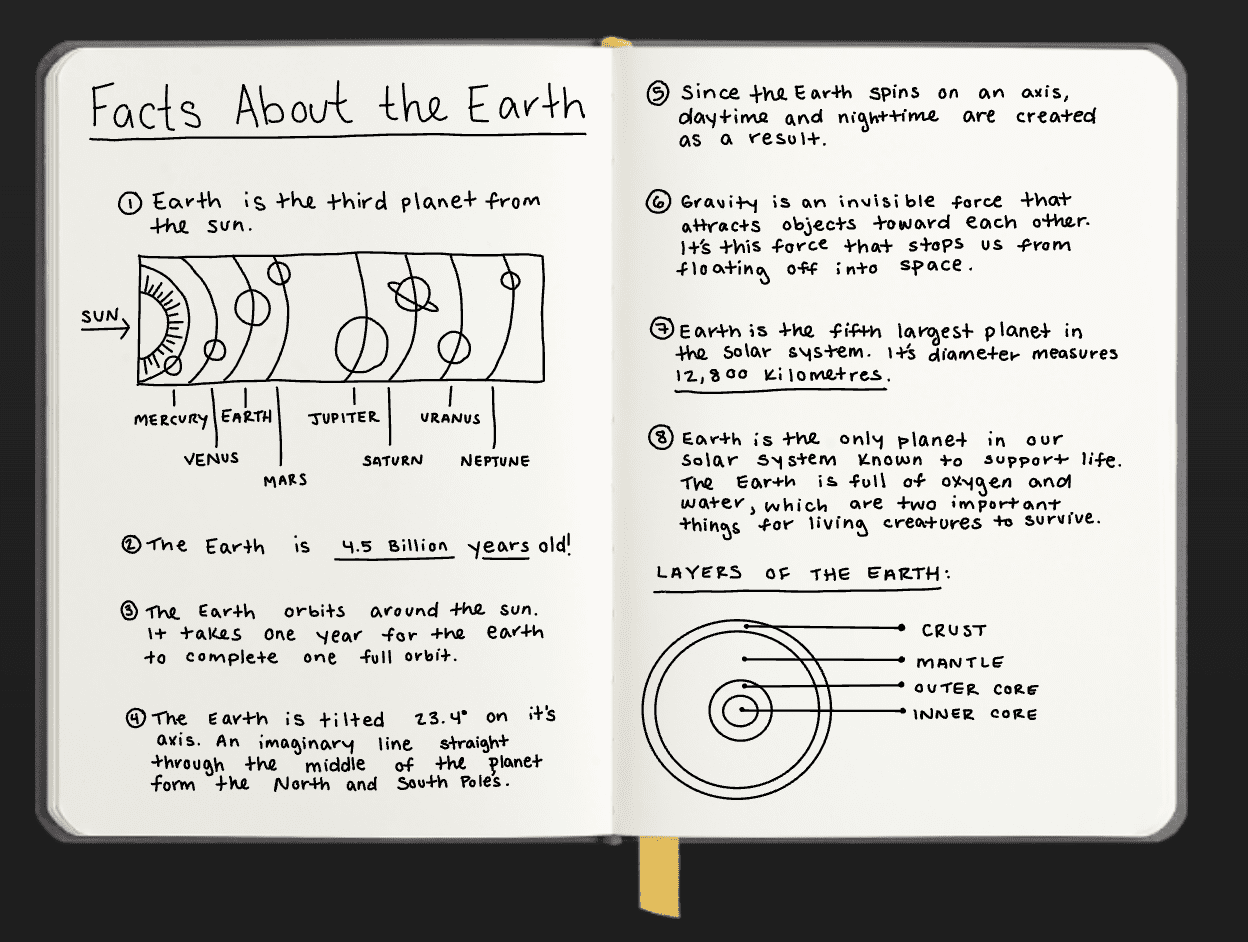 Facts About the Earth
① Earth is the third planet from
the sun.
SUN
MERCURY
VENUS
EARTH
MARS
JUPITER
SATURN
URANUS
NEPTUNE
② The Earth is 4.5 Billion years old!
③ The Earth orbits around the sun.
It takes one year for the earth
to complete one full orbit.
④ The Earth is tilted 23.4° on it's
axis. An imaginary line straight
through the middle of the planet
form the North and South Pole's.
⑤ Since the Earth spins on an axis,
daytime and nighttime are created
as a result.
⑥ Gravity is an invisible force that
attracts objects toward each other.
It's this force that stops us from
floating off into space.
⑦ Earth is the fifth largest planet in
the solar system. It's diameter measures
12,800 kilometres.
⑧ Earth is the only planet in our
solar system known to support life.
The Earth is full of oxygen and
water, which are two important
things for living creatures to survive.
LAYERS OF THE EARTH:
CRUST
MANTLE
OUTER CORE
INNER CORE